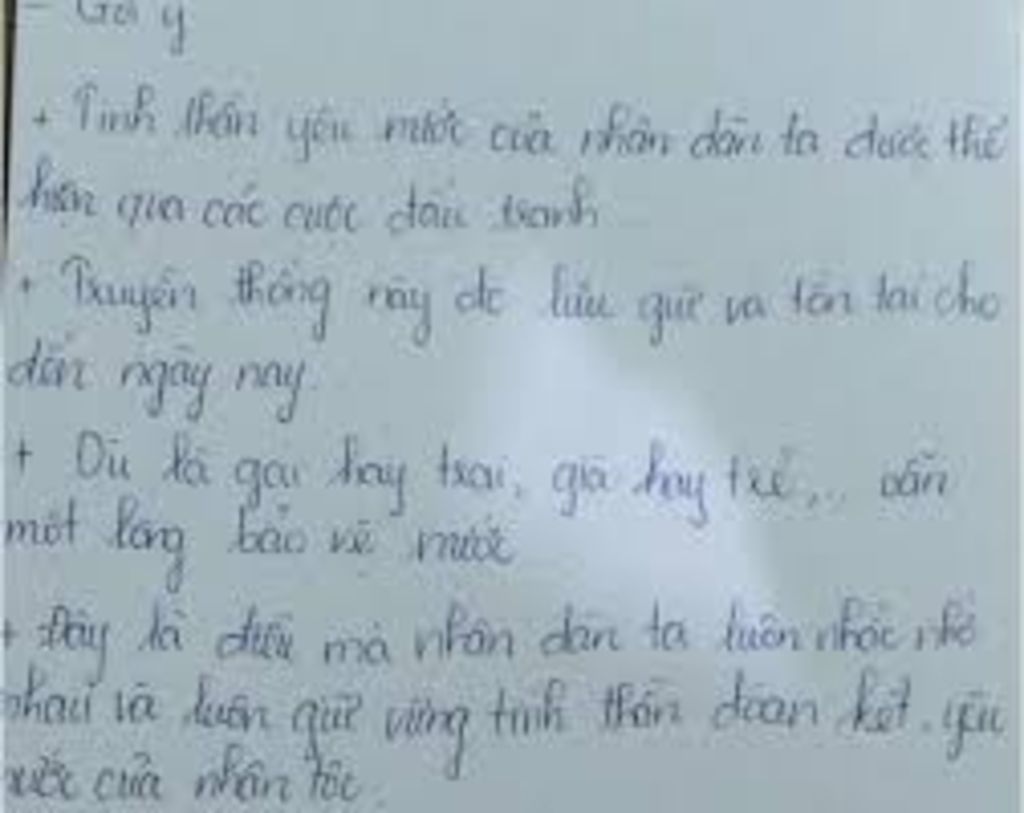 - Gợi ý
+ Tinh thần yêu nước của nhân dân ta được thể
hiện qua các cuộc đấu tranh
+ Truyền thống này đc lưu giữ và tồn tại cho
đến ngày nay.
+ Dù là gái hay trai, già hay trẻ,... vẫn
một lòng bảo vệ nước
+ Đây là điều mà nhân dân ta luôn nhắc nhở
nhau và luôn giữ vững tinh thần đoàn kết, yêu
nước của nhân tộc.